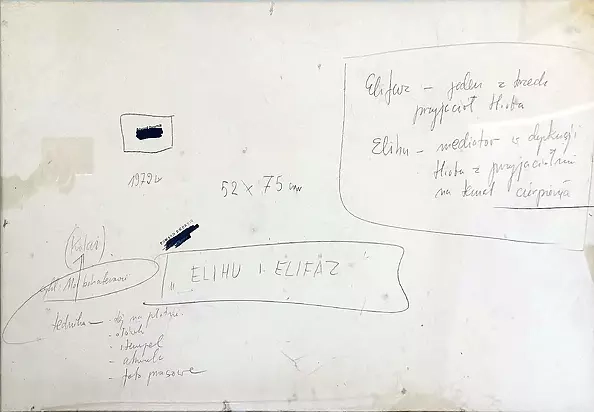 Elifaz – jeden z trzech
przyjaciół Hioba
Elihu – mediator w dyskusji
Hioba z przyjaciółmi
na temat cierpienia
1979 r
52 x 75 cm
"ELIHU I ELIFAZ
technika – olej na płótnie
- ołówek
- stempel
- akwarela
- foto prasowe